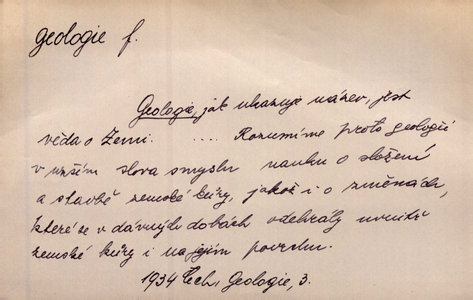 geologie f.
Geologie, jak ukazuje název, jest
věda o Zemi. .... Rozumíme proto geologií
v užším slova smyslu nauku o složení
a stavbě zemské kůry, jakož i o změnách,
které se v dávných dobách odehrály uvnitř
zemské kůry i na jejím povrchu.
1934 Čech, Geologie, 3.